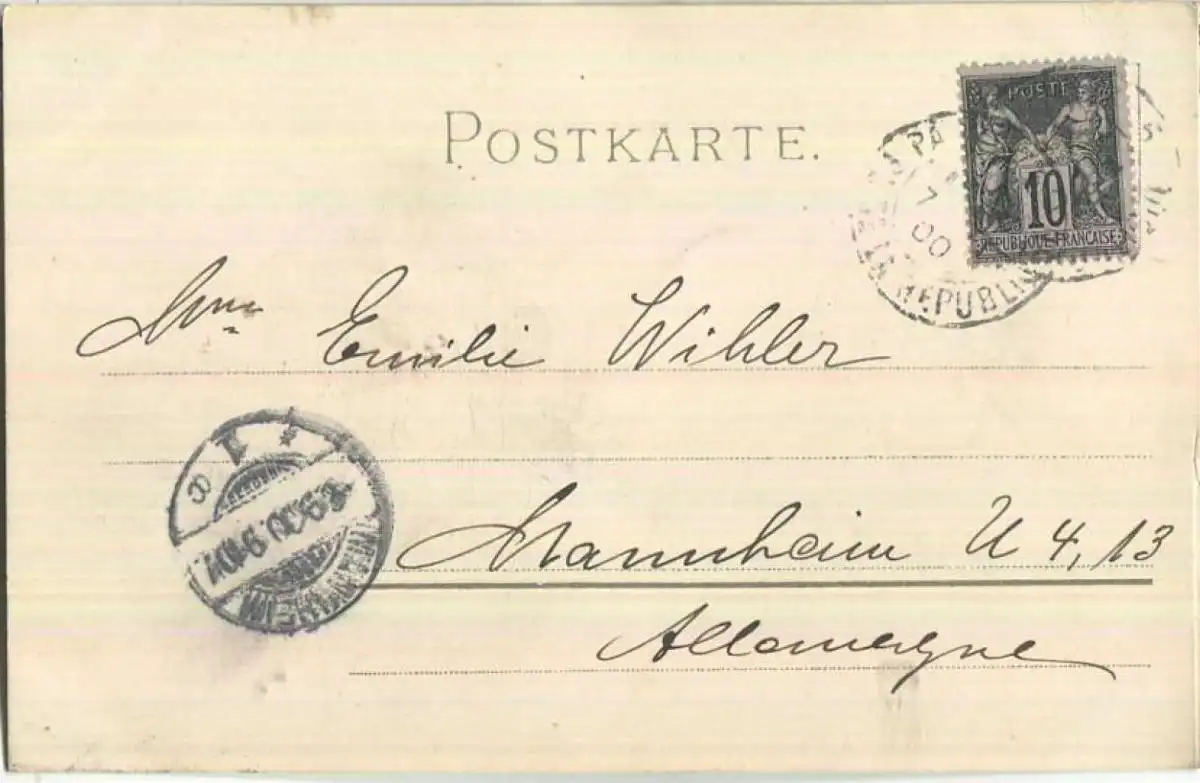 POSTKARTE.
POSTE
10
REPUBLIQUE FRANCAISE
PA
7
00
REPUBLI
Mme Emilie Wihler
Mannheim U 4, 13
Allemagne
MANNHEIM